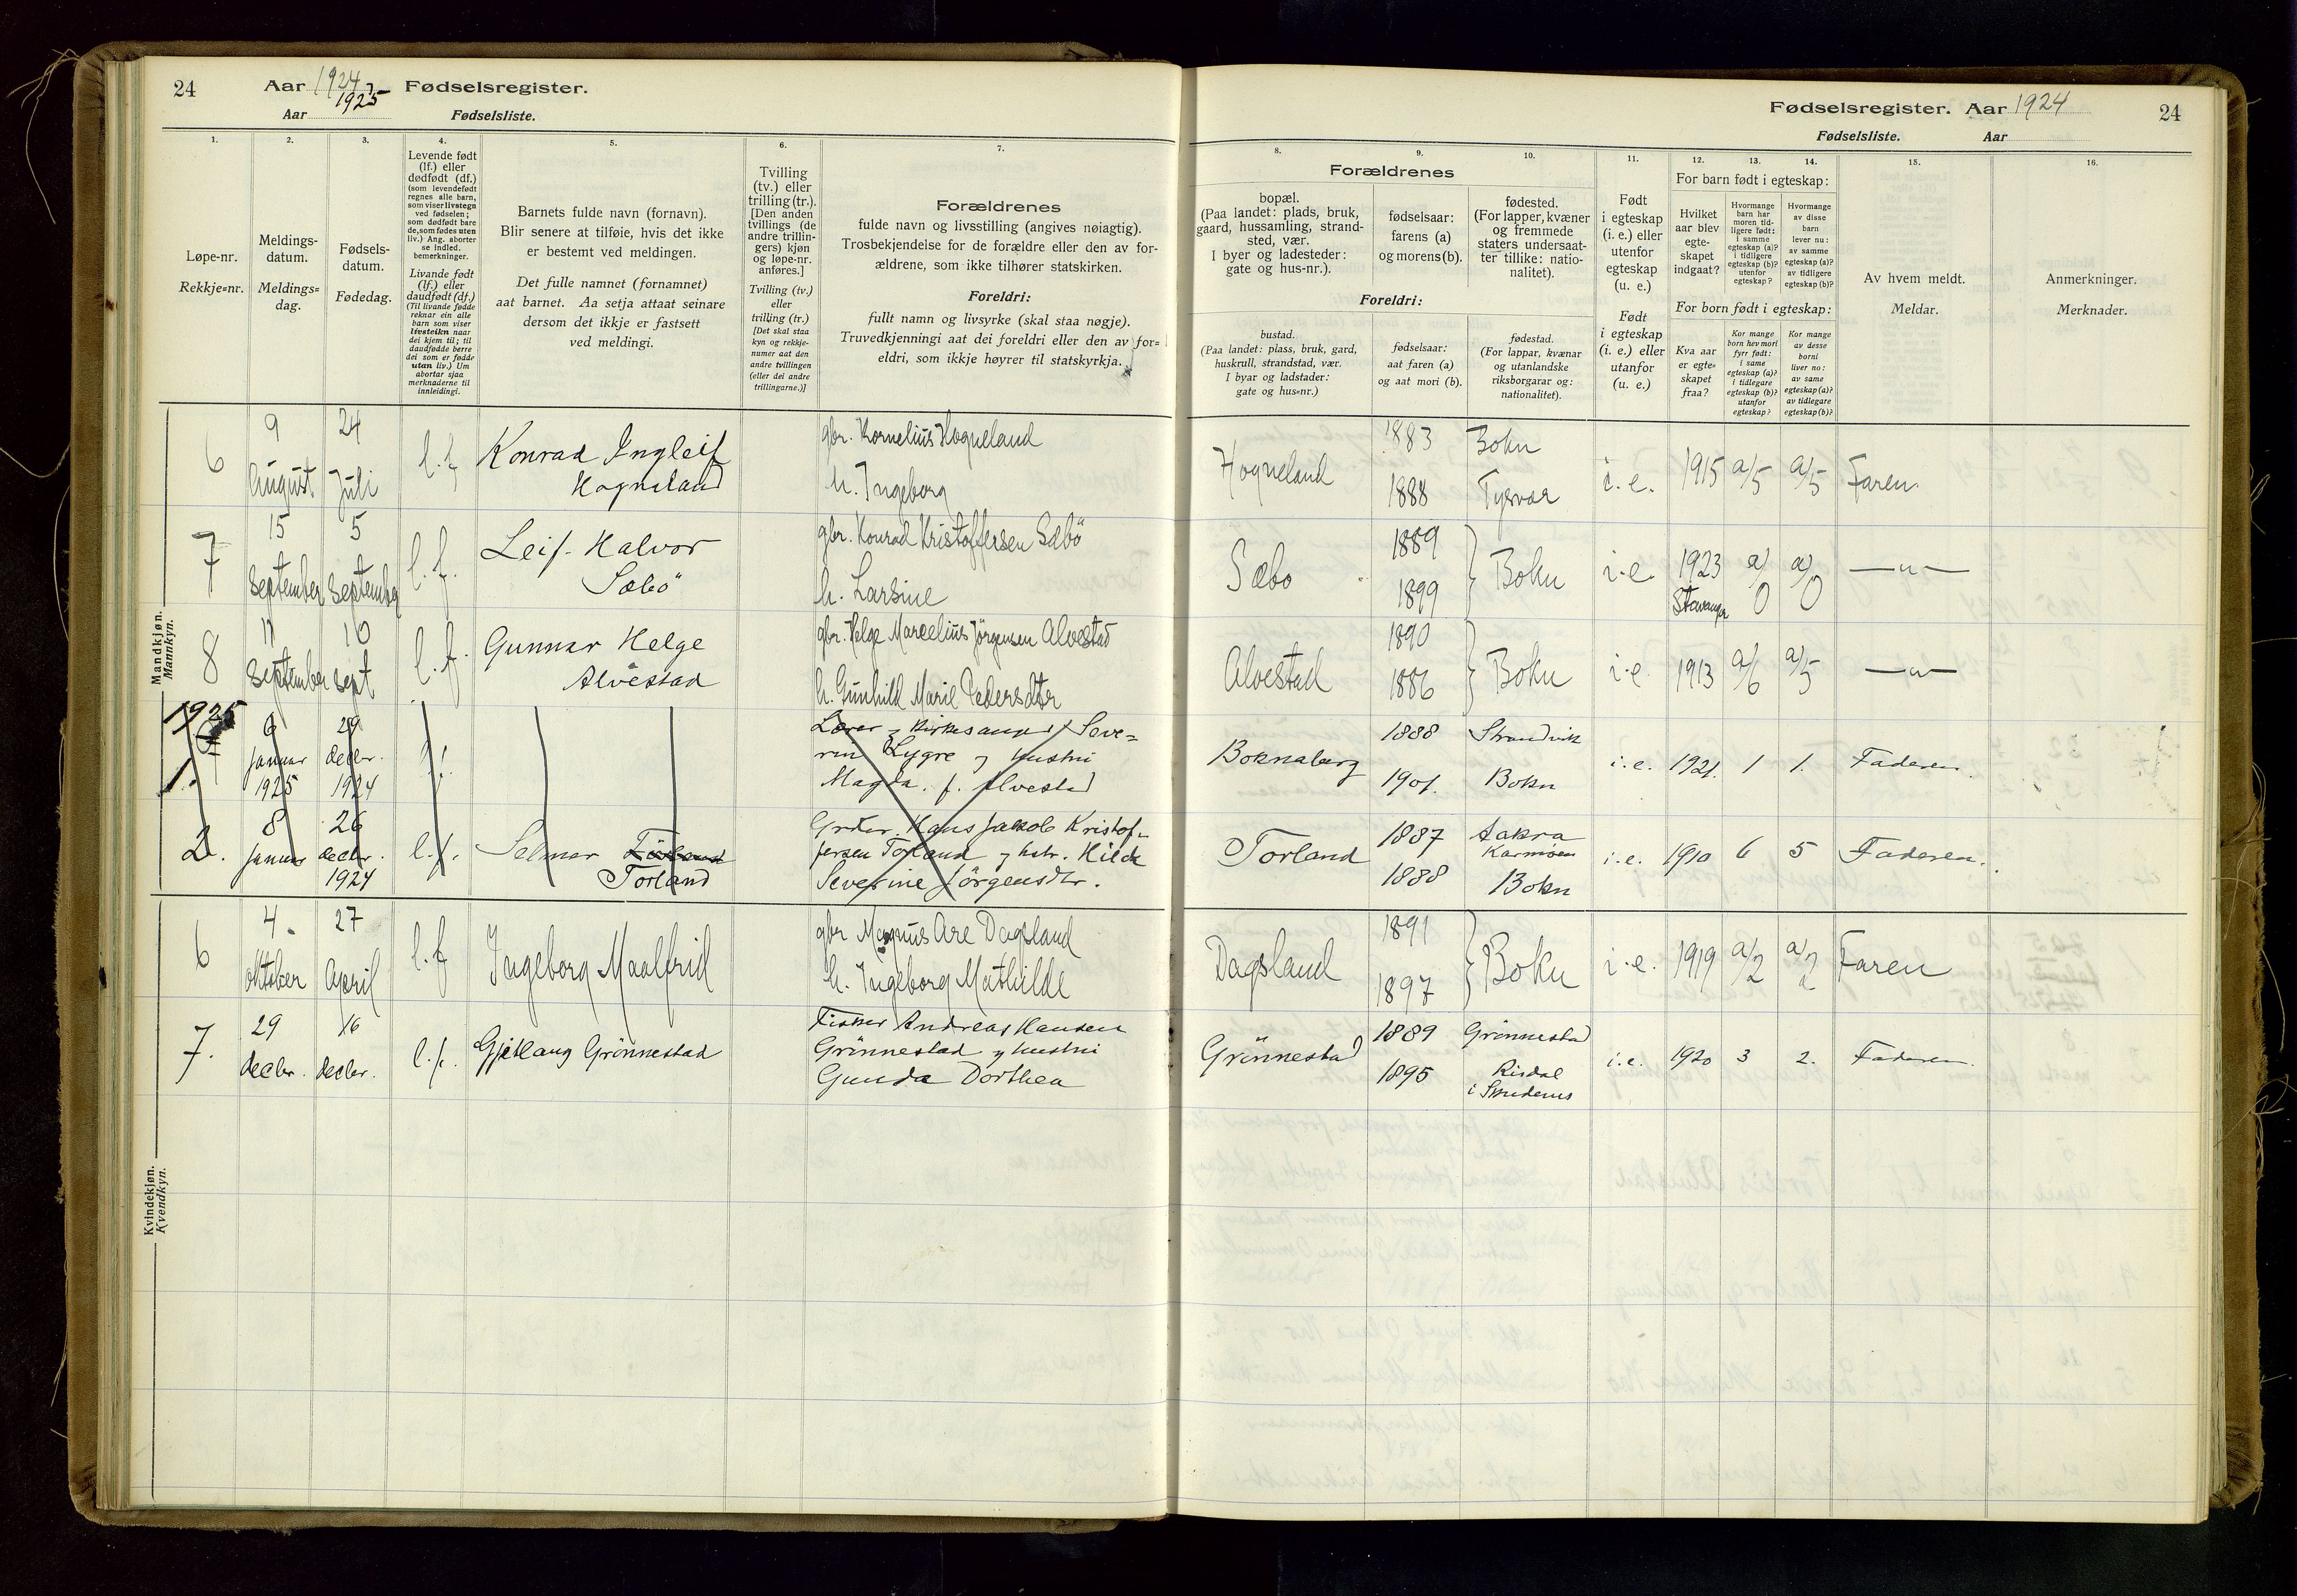 24
Aar 1924, Fødselsregister.
1925
Aar Fødselsliste.
Fødselsregister. Aar 1924
24
Fødselsliste. Aar
1.
Løpe-nr.
Rekkje=nr.
2.
Meldings-
datum.
Meldings=
dag.
3.
Fødsels-
datum.
Fødedag.
4.
Levende født
(lf.) eller
dødfødt (df.)
(som levendefødt
regnes alle barn,
som viser livstegn
ved fødselen;
som dødfødt bare
de, som fødes uten
liv.) Ang. aborter
se indled.
bemerkninger.
Livande født
(lf.) eller
daudfødt (df.)
(Til livande fødde
reknar ein alle
barn som viser
livsteikn naar
dei kjem til; til
daudfødde berre
dei som er fødde
utan liv.) Um
abortar sjaa
merknaderne til
innleidingi.
5.
Barnets fulde navn (fornavn).
Blir senere at tilføie, hvis det ikke
er bestemt ved meldingen.
Det fulle namnet (fornamnet)
aat barnet. Aa setja attaat seinare
dersom det ikkje er fastsett
ved meldingi.
6.
Tvilling
(tv.) eller
trilling (tr.).
[Den anden
tvillings (de
andre trillin-
gers) kjøn
og løpe-nr.
anføres.]
Tvilling (tv.)
eller
trilling (tr.)
[Det skal staa
kyn og rekkje-
numer aat den
andre tvillingen
(eller dei andre
trillingarne.)]
7.
Forældrenes
fulde navn og livsstilling (angives nøiagtig).
Trosbekjendelse for de forældre eller den av for-
ældrene, som ikke tilhører statskirken.
Foreldri:
fullt namn og livsyrke (skal staa nøgje).
Truvedkjenningi aat dei foreldri eller den av for=
eldri, som ikkje høyrer til statskyrkja.
Forældrenes
8.
bopæl.
(Paa landet: plads, bruk,
gaard, hussamling, strand-
sted, vær.
I byer og ladesteder:
gate og hus-nr.).
9.
fødselsaar:
farens (a)
og morens (b).
10.
fødested.
(For lapper, kvæner
og fremmede
staters undersaat-
ter tillike: natio-
nalitet).
Foreldri:
bustad.
(Paa landet: plass, bruk, gard,
huskrull, strandstad, vær.
I byar og ladstader:
gate og hus=nr.)
fødselsaar:
aat faren (a)
og aat mori (b).
fødestad.
(For lappar, kvænar
og utanlandske
riksborgarar og:
nationalitet).
11.
Født
i egteskap
(i. e.) eller
utenfor
egteskap
(u. e.)
Født
i egteskap
(i. e.) eller
utanfor
(u. e.)
12. 13. 14.
For barn født i egteskap:
Hvilket
aar blev
egte-
skapet
indgaat?
Hvormange
barn har
moren tid-
ligere født:
i samme
egteskap (a)?
i tidligere
egteskap (b)?
utenfor
egteskap?
Hvormange
av disse
barn
lever nu:
av samme
egteskap (a)?
av tidligere
egteskap (b)?
For born født i egteskap:
Kva aar
er egte=
skapet
fraa?
Kor mange
born hev mori
fyrr født:
i same
egteskap (a)?
i tidlegare
egteskap (b)?
utanfor
egteskap?
Kor mange
av desse
borni
liver no:
av same
egteskap (a)?
av tidlegare
egteskap (b)?
15.
Av hvem meldt.
Meldar.
16.
Anmerkninger.
Merknader.
Mandkjøn.
Mannkyn.
6 9 August 24 Juli l.f Konrad Ingleif
Hogneland
gbr. Kornelius Hogneland
h. Ingeborg
Hogneland 1883 Bokn
1888 Tysvær
i.e. 1915 a/5 a/5 Faren
7 15 September 5 September l.f. Leif Halvor
Sæbö
gbr. Konrad Kristoffersen Sæbö
h. Larsine
Sæbo 1889
1899
Bokn i.e. 1923 a/0 a/0 —"—
Stavanger
8 11 September 10 Sept l.f. Gunnar Helge
Alvestad
gbr. Helge Marcelius Jörgensen Alvestad
h. Gunhild Marie Pedersdtr
Alvestad 1890
1886
Bokn i.e 1913 a/6 a/5 —"—
1925
1. 6 januar 1925 29 decbr. 1924 l.f.
Lærer og kirkesanger Seve=
rin Lygre og hustru
Magda f. Alvestad
Boknaberg 1888 Strandvik
1901. Bokn
i.e. 1921. 1 1. Faderen.
2. 8 januar 26 decbr. 1924 l.f. Selmar
Torland
Grbr. Hans Jakob Kristof-
fersen Torland og hstr. Hilda
Severine Jörgensdtr.
Torland 1887 Aakra
Karmöen
1888 Bokn
i.e. 1910 6 5 Faderen.
Kvindekjøn.
Kvendkyn.
6 4. Oktober 27 April l.f Ingeborg Maalfrid
gbr Magnus Are Dagsland
h. Ingeborg Mathilde
Dagsland 1891
1897
Bokn i.e. 1919 a/2 a/2 Faren
7. 29 decbr. 16 decbr. l.f. Gjetlaug Grönnestad
Fisker Andreas Hansen
Grönnestad og hustru
Gunda Dorthea
Grönnestad 1889 Grönnestad
1895 Risdal
i Skudenes
i.e. 1920 3 2. Faderen.